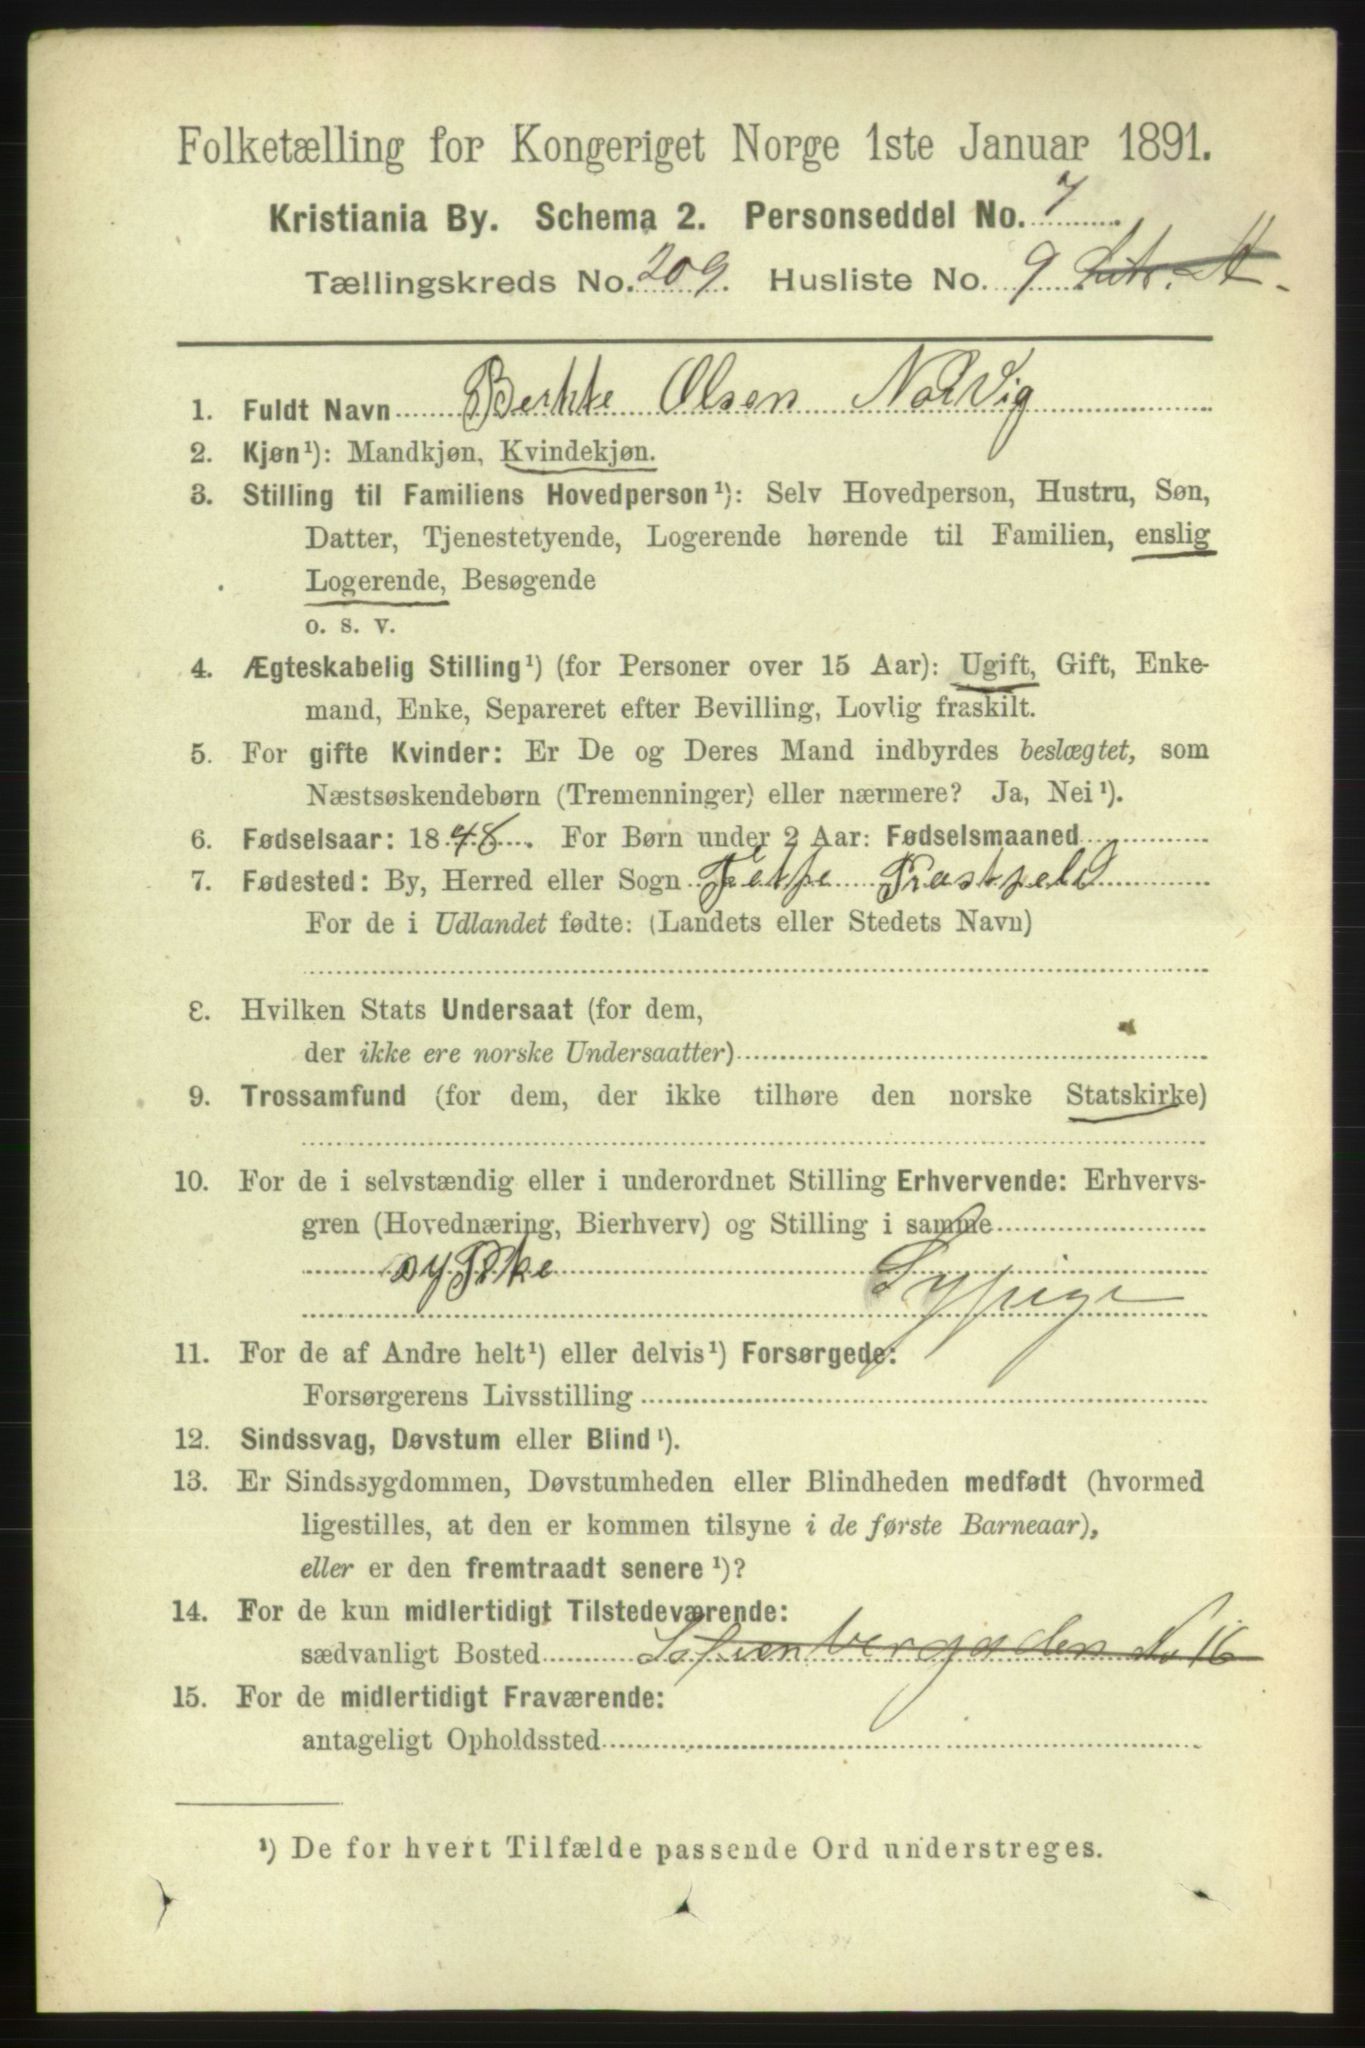 Folketælling for Kongeriget Norge 1ste Januar 1891.
Kristiania By. Schema 2. Personseddel No. 7
Tællingskreds No. 209. Husliste No. 9 Litr. A
1. Fuldt Navn Berthe Olsen NorVig
2. Kjøn¹): Mandkjøn, Kvindekjøn.
3. Stilling til Familiens Hovedperson¹): Selv Hovedperson, Hustru, Søn,
Datter, Tjenestetyende, Logerende hørende til Familien, enslig
Logerende, Besøgende
o. s. v.
4. Ægteskabelig Stilling¹) (for Personer over 15 Aar): Ugift, Gift, Enke-
mand, Enke, Separeret efter Bevilling, Lovlig fraskilt.
5. For gifte Kvinder: Er De og Deres Mand indbyrdes beslægtet, som
Næstsøskendebørn (Tremenninger) eller nærmere? Ja, Nei¹).
6. Fødselsaar: 1848. For Børn under 2 Aar: Fødselsmaaned
7. Fødested: By, Herred eller Sogn
For de i Udlandet fødte: (Landets eller Stedets Navn)
8. Hvilken Stats Undersaat (for dem,
der ikke ere norske Undersaatter)
9. Trossamfund (for dem, der ikke tilhøre den norske Statskirke)
10. For de i selvstændig eller i underordnet Stilling Erhvervende: Erhvervs-
gren (Hovednæring, Bierhverv) og Stilling i samme
Sypige
11. For de af Andre helt¹) eller delvis¹) Forsørgede:
Forsørgerens Livsstilling
12. Sindssvag, Døvstum eller Blind¹).
13. Er Sindssygdommen, Døvstumheden eller Blindheden medfødt (hvormed
ligestilles, at den er kommen tilsyne i de første Barneaar),
eller er den fremtraadt senere¹)?
14. For de kun midlertidigt Tilstedeværende:
sædvanligt Bosted Sofienbergaden No 16
15. For de midlertidigt Fraværende:
antageligt Opholdssted
¹) De for hvert Tilfælde passende Ord understreges.